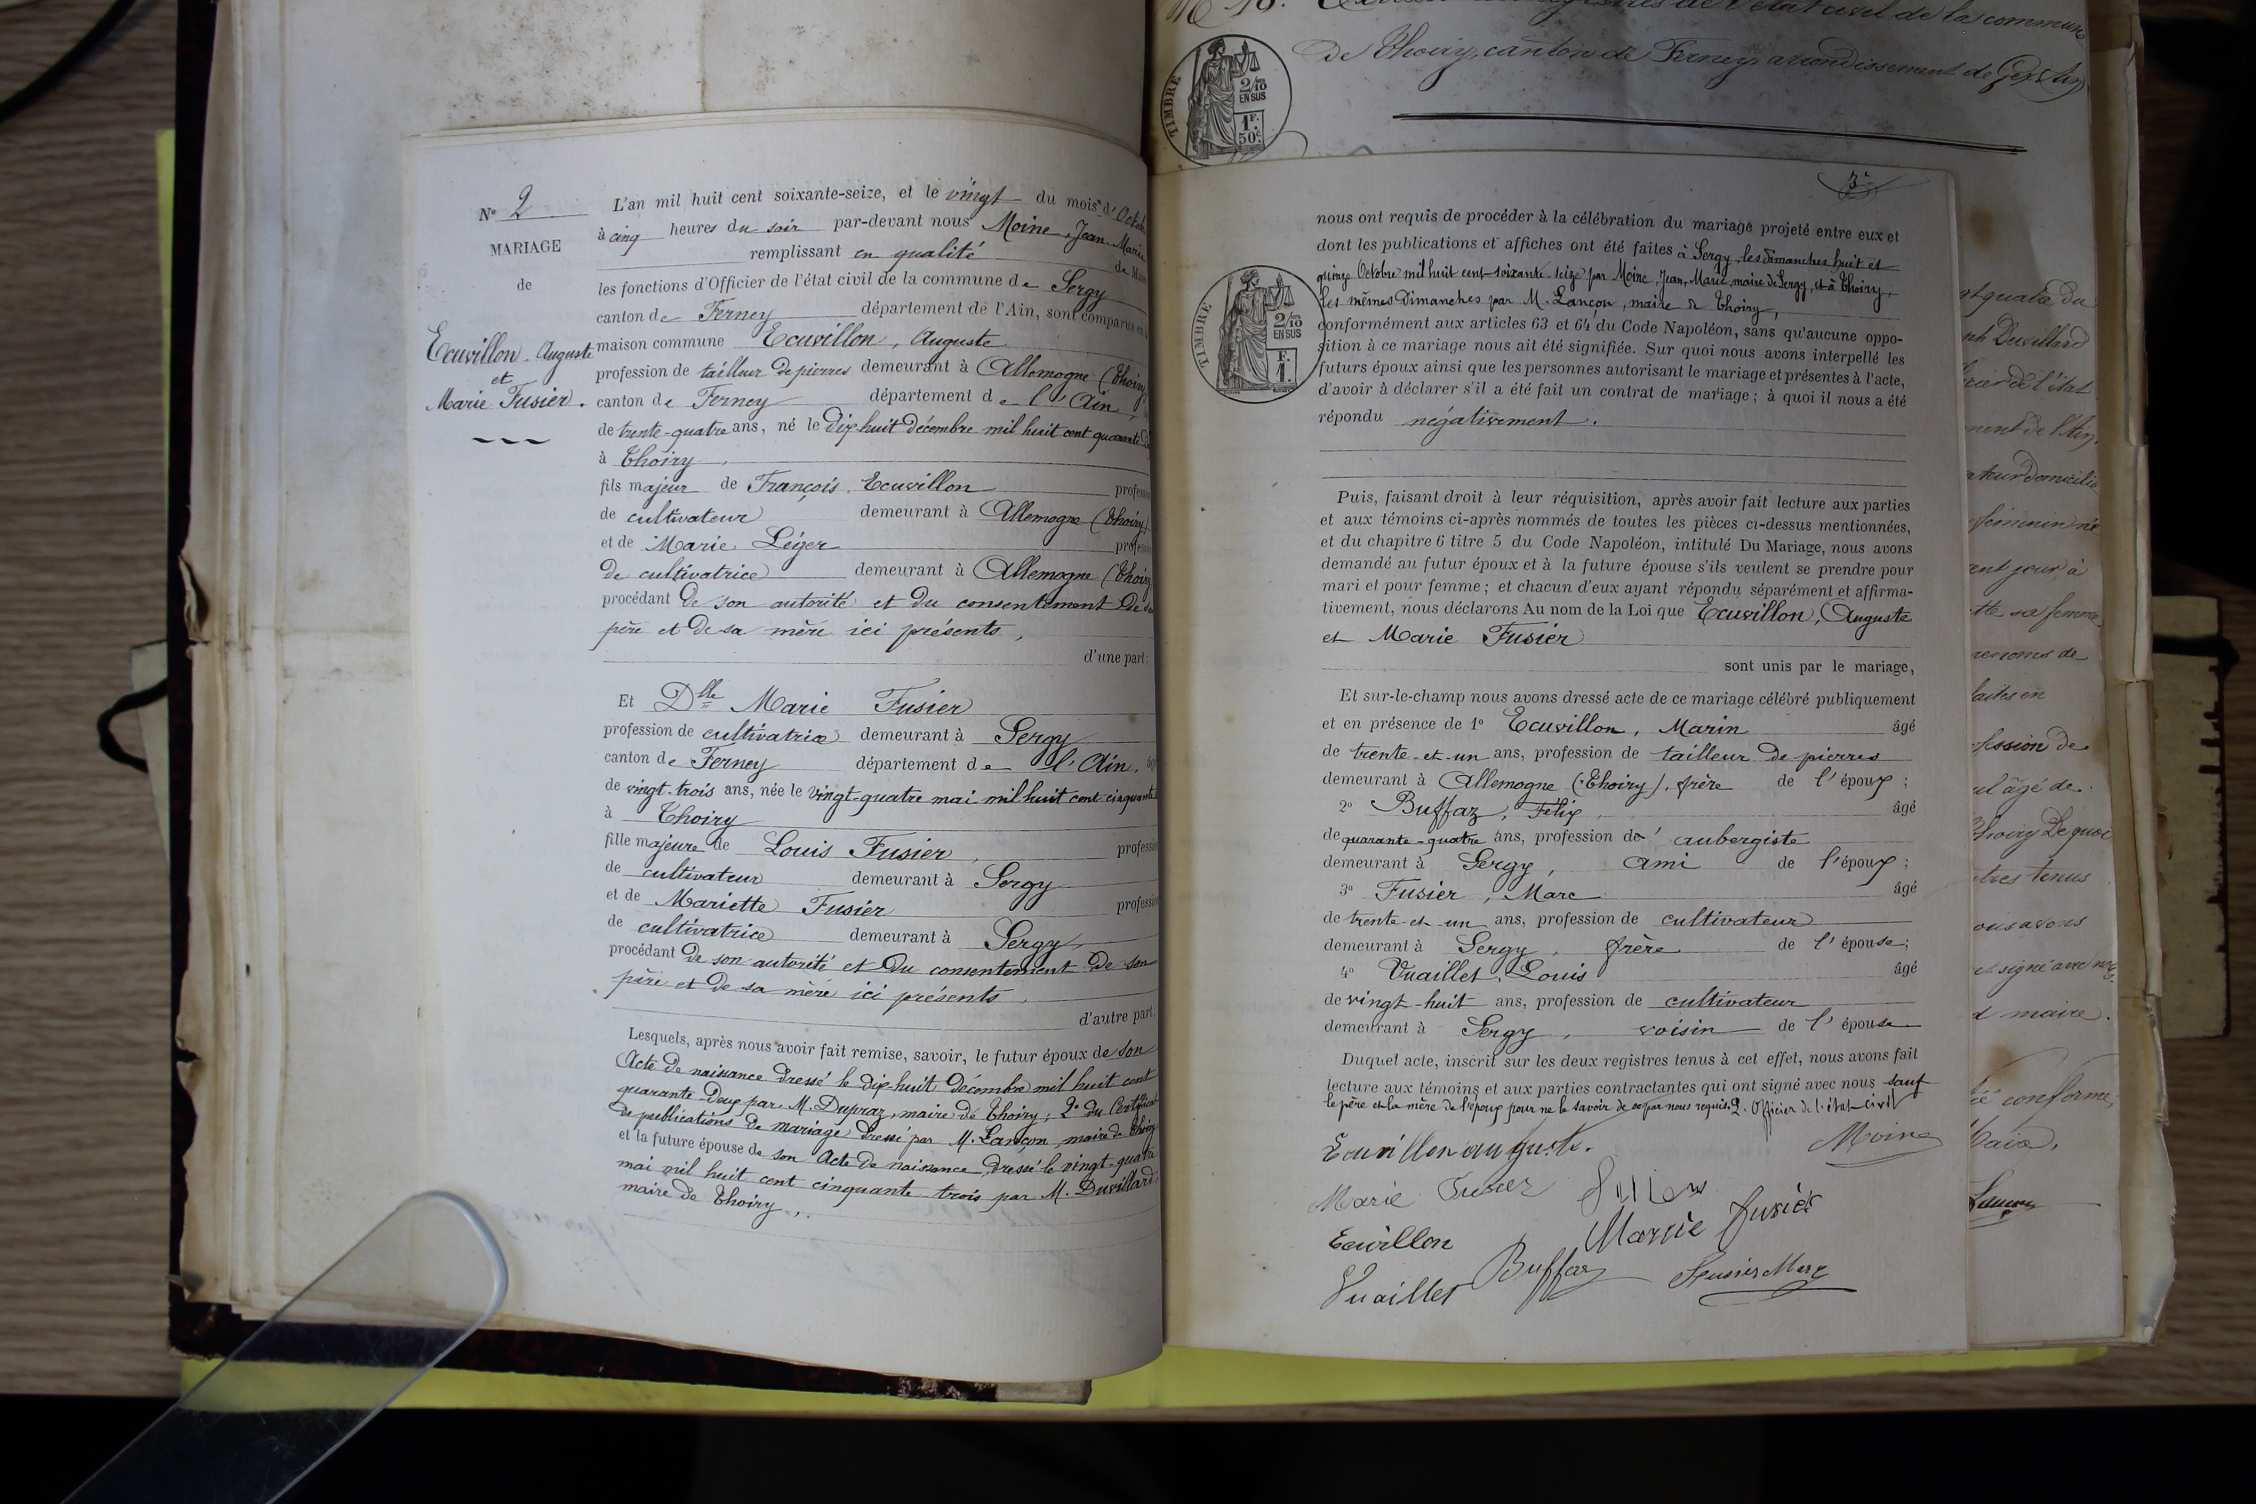 Nº 2
MARIAGE
de
Ecuvillon Auguste
et
Marie Fusier.
L'an mil huit cent soixante-seize, et le vingt du mois d'Octob
à cinq heures du soir par-devant nous Moine, Jean Marie
remplissant en qualité de M
les fonctions d'Officier de l'état civil de la commune de Sergy
canton de Ferney département de l'Ain, sont comparus en
maison commune Ecuvillon, Auguste
profession de tailleur de pierres demeurant à Allemogne (Thoiry
canton de Ferney département de l'Ain,
de trente-quatre ans, né le Dix huit décembre mil huit cent quarante
à Thoiry,
fils majeur de François Ecuvillon profession
de cultivateur demeurant à Allemogne (Thoiry)
et de Marie Léger profession
de cultivatrice demeurant à Allemogne (Thoiry
procédant de son autorité et du consentement de
père et de sa mère ici présents,
d'une part:
Et Dlle Marie Fusier
profession de cultivatrice demeurant à Sergy
canton de Ferney département de l'Ain,
de vingt-trois ans, née le vingt-quatre mai mil huit cent cinquante
à Thoiry
fille majeure de Louis Fusier, profession
de cultivateur demeurant à Sergy
et de Mariette Fusier profession
de cultivatrice demeurant à Sergy
procédant de son autorité et du consentement de son
père et de sa mère ici présents,
d'autre part.
Lesquels, après nous avoir fait remise, savoir, le futur époux de son
Acte de naissance dressé le dix-huit Décembre mil huit cent
quarante-deux par M. Dupraz, maire de Thoiry; 2º du Certificat
de publications de mariage dressé par M. Lançon maire de Thoiry
et la future épouse de son Acte de naissance dressé le vingt-quatre
mai mil huit cent cinquante trois par M. Duvillard
maire de Thoiry,.
Nº 18. Extrait des registres de l'état civil de la commune
de Thoiry, canton de Ferney arrondissement de Gex (Ain)
TIMBRE
2/10
EN SUS
1F.
50c.
3e
nous ont requis de procéder à la célébration du mariage projeté entre eux et
dont les publications et affiches ont été faites à Sergy, les dimanches huit et
quinze Octobre mil huit cent soixante-seize par Moine, Jean, Marie maire de Sergy, et à Thoiry,
les mêmes Dimanches par M. Lançon, maire de Thoiry,
TIMBRE
2/10
EN SUS
F.
1.
conformément aux articles 63 et 64 du Code Napoléon, sans qu'aucune oppo-
sition à ce mariage nous ait été signifiée. Sur quoi nous avons interpellé les
futurs époux ainsi que les personnes autorisant le mariage et présentes à l'acte,
d'avoir à déclarer s'il a été fait un contrat de mariage; à quoi il nous a été
répondu négativement.
Puis, faisant droit à leur réquisition, après avoir fait lecture aux parties
et aux témoins ci-après nommés de toutes les pièces ci-dessus mentionnées,
et du chapitre 6 titre 5 du Code Napoléon, intitulé Du Mariage, nous avons
demandé au futur époux et à la future épouse s'ils veulent se prendre pour
mari et pour femme; et chacun d'eux ayant répondu séparément et affirma-
tivement, nous déclarons Au nom de la Loi que Ecuvillon, Auguste
et Marie Fusier
sont unis par le mariage,
Et sur-le-champ nous avons dressé acte de ce mariage célébré publiquement
et en présence de 1º Ecuvillon, Marin âgé
de trente-et-un ans, profession de tailleur de pierres
demeurant à Allemogne (Thoiry), frère de l'époux;
2º Buffaz, Félix, âgé
de quarante-quatre ans, profession d'aubergiste
demeurant à Sergy, ami de l'époux;
3º Fusier, Marc âgé
de trente-et-un ans, profession de cultivateur
demeurant à Sergy, frère de l'épouse;
4º Vuaillet, Louis âgé
de vingt-huit ans, profession de cultivateur
demeurant à Sergy, voisin de l'épouse
Duquel acte, inscrit sur les deux registres tenus à cet effet, nous avons fait
lecture aux témoins et aux parties contractantes qui ont signé avec nous sauf
le père et la mère de l'époux pour ne le savoir de ce par nous requis. L'Officier de l'état-civil
Ecuvillon auguste.
Moine
Marie Fusier
Ecuvillon
Mariie fusier
Vuaillet
Buffaz
Fusier Marc
quatre du
Duvillard
de l'état
de l'Ain,
domicilié
féminin
jour à
sa femme
de
faites en
fession de
âgé de
Thoiry De quoi
tenus
avons
et signé avec nous
maire.
conforme,
Lançon